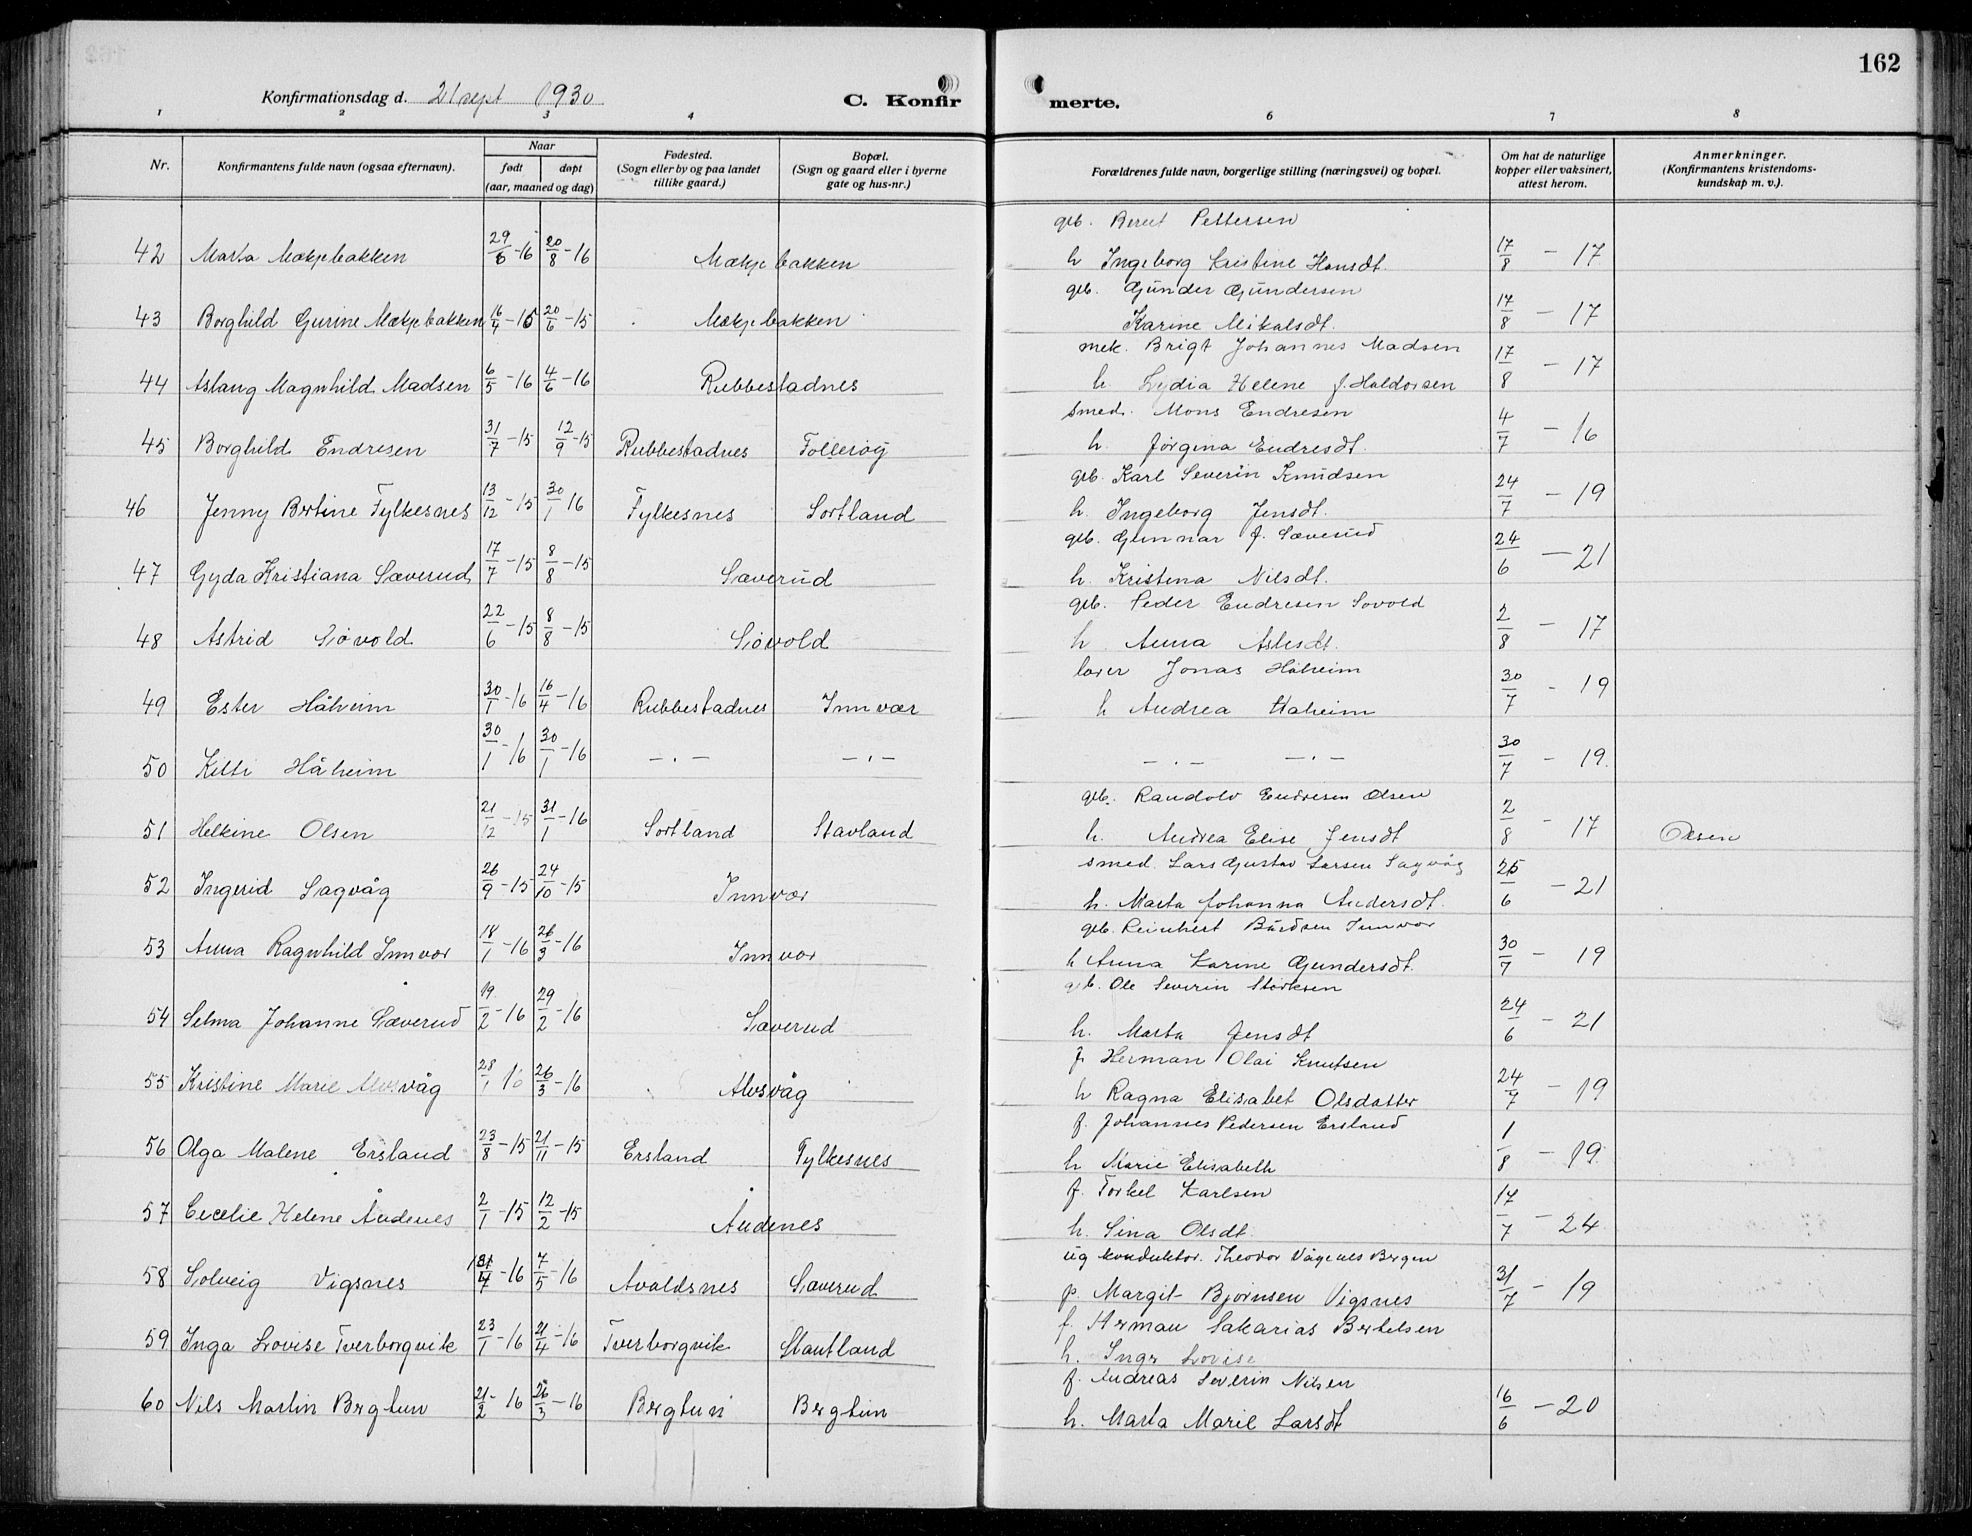 162
Konfirmationsdag d. 21 sept 1930
C. Konfirmerte.
1 2 3 4 6 7 8
Nr.
Konfirmantens fulde navn (ogsaa efternavn).
Naar
født døpt
(aar, maaned og dag)
Fødested.
(Sogn eller by og paa landet
tillike gaard.)
Bopæl.
(Sogn og gaard eller i byerne
gate og hus-nr.)
Forældrenes fulde navn, borgerlige stilling (næringsvei) og bopæl.
Om hat de naturlige
kopper eller vaksinert,
attest herom.
Anmerkninger.
(Konfirmantens kristendoms-
kundskap m. v.).
gb. Berut Pettersen
42 Marta Mækjebakken 29/6-16 20/8-16 Mækjebakken h Ingeborg Kristine Hansdt. 17/8 - 17
gb. Gunder Gundersen
43 Borghild Gurine Mækjebakken 16/4-15 20/6-15 Mækjebakken Karine Mikalsdt. 17/8 - 17
mek. Brigt Johannes Madsen
44 Aslaug Magnhild Madsen 6/5-16 4/6-16 Rubbestadnes h. Lydia Helene f. Haldorsen 17/8 - 17
smed. Mons Endresen
45 Borghild Endresen 31/7-15 12/9-15 Rubbestadnes Follesøy h. Jørgina Endresdt. 4/7 - 16
gb. Karl Severin Knudsen
46 Jenny Bertine Fylkesnes 13/12-15 30/1 16 Fylkesnes Sortland h. Ingeborg Jensdt. 24/7 - 19
gb. Gunnar J. Sæverud
47 Gyda Kristiana Sæverud 17/7-15 8/8-15 Sæverud h. Kristena Nilsdt. 24/6 - 21
gb. Peder Endresen Sovold
48 Astrid Siøvold 22/6-15 8/8-15 Siøvold h. Anna Aslesdt. 2/8 - 17
lærer Jonas Håheim
49 Ester Håheim 30/1-16 16/4-16 Rubbestadnes Innvær h Andrea Haheim 30/7 - 19
50 Kitti Håheim 30/1-16 30/1-16 -·- -·- -·- -·- 30/7 - 19
gb. Randolv Endresen Olsen
51 Helkine Olsen 21/12-15 31/1-16 Sortland Stavland h. Andrea Elise Jensdt 2/8 - 17 Olsen
smed. Lars Gustav Larsen Sagvåg
52 Ingerid Sagvåg 26/9-15 24/10-15 Innvær h. Marta Johanna Andersdt. 25/6 - 21
gb. Reinhert Bårdsen Innvær
53 Anna Ragnhild Innvær 18/1-16 26/3-16 Innvær h Anna Karine Gundersdt. 30/7 - 19
gb. Ole Severin Størksen
54 Selma Johanne Sæverud 19/2-16 29/2-16 Sæverud h. Marta Jensdt 24/6 - 21
f. Herman Olai Knutsen
55 Kristine Marie Alvsvåg 28/1 16 26/3-16 Alvsvåg h Ragna Elisabet Olsdatter 24/7 - 19
f. Johannes Pedersen Ersland
56 Olga Malene Ersland 23/8-15 21/11-15 Ersland Fylkesnes h Marie Elisabeth 1/8 - 19
f. Torkel Karlsen
57 Cecelie Helene Åudenes 2/1-15 12/2-15 Åudenes h. Sina Olsdt. 17/7 - 24
ug konduktør. Theodor Vågenes Bergen
58 Solveig Vigsnes 4-16 7/5-16 Avaldsnes Sæverud p. Margit Bjørnsen Vigsnes 31/7 - 19
f. Herman Sakarias Bertelsen
59 Inga Lovise Tverborgvik 23/1-16 21/4-16 Tverborgvik Stautland h. Inga Lovise
f. Andreas Severin Nilsen
60 Nils Martin Bergtun 21/2-16 26/3-16 Bergtun Bergtun h. Marta Marie Larsdt 16/6 - 20